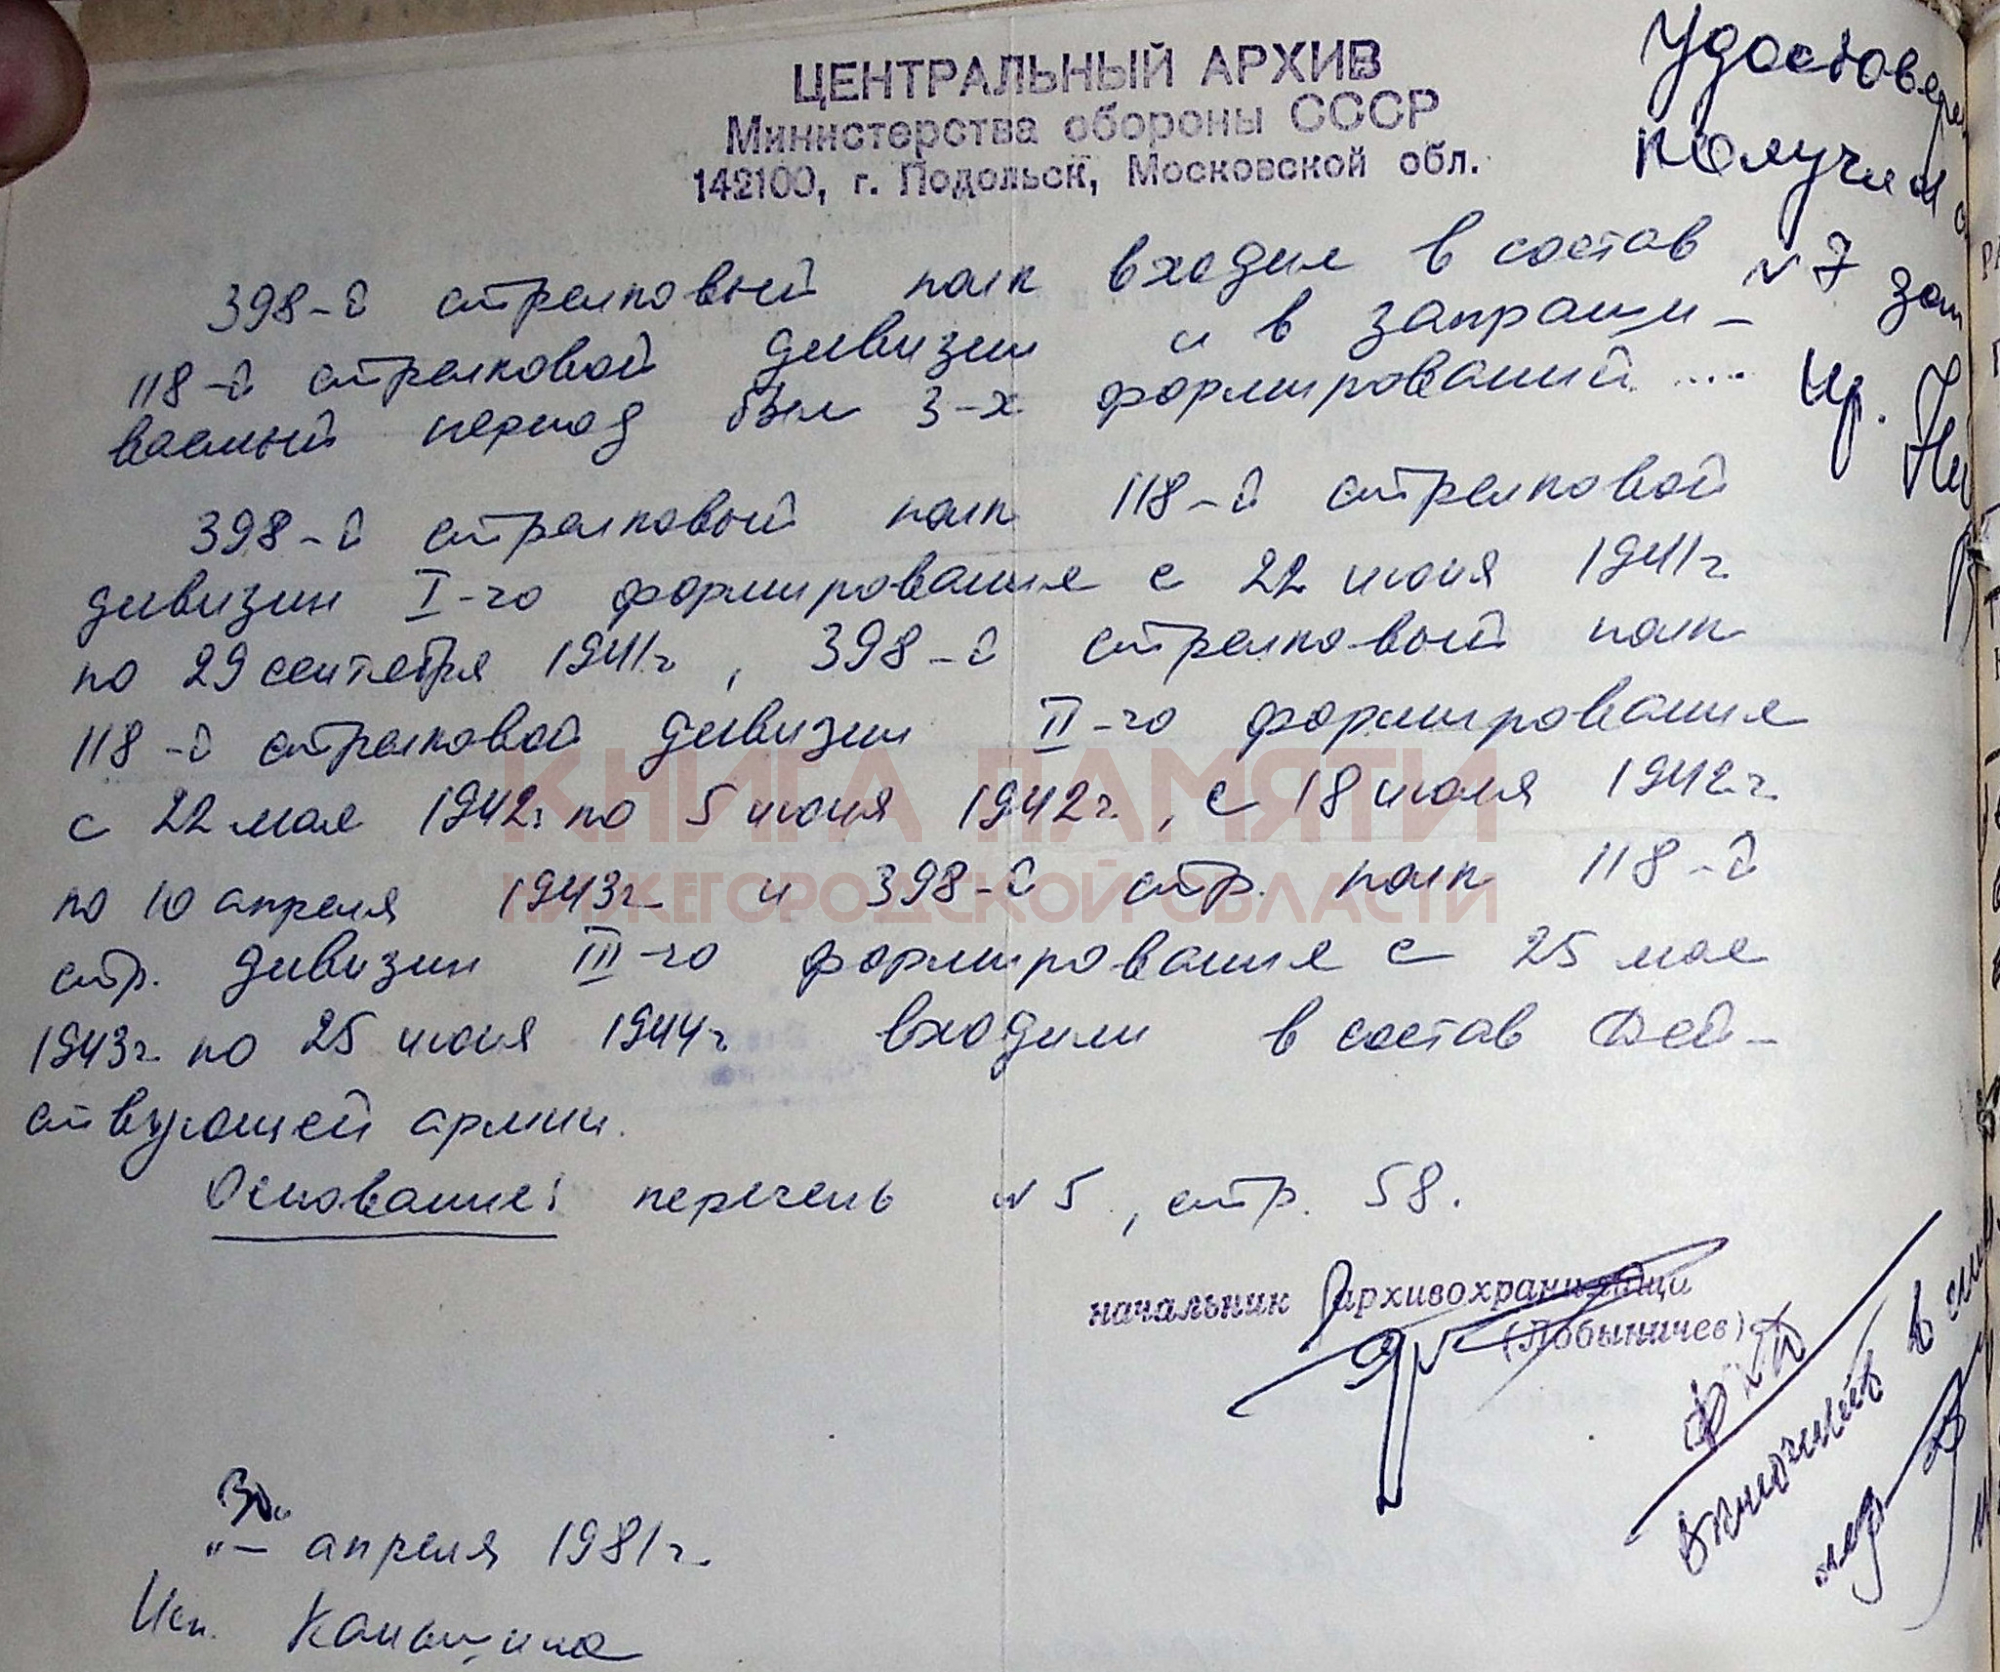 ЦЕНТРАЛЬНЫЙ АРХИВ
Министерства обороны СССР
142100, г. Подольск, Московской обл.
Удостовер
получил
№ 7
398-й стрелковый полк входил в состав
118-й стрелковой дивизии и в запраши-
ваемый период был 3-х формирований....
398-й стрелковый полк 118-й стрелковой
дивизии I-го формирования с 22 июня 1941г
по 29 сентября 1941г, 398-й стрелковый полк
118-й стрелковой дивизии II-го формирования
с 22 мая 1942г. по 5 июня 1942г., с 18 июля 1942г.
по 10 апреля 1943г и 398-й стр. полк 118-й
стр. дивизии III-го формирования с 25 мая
1943г. по 25 июня 1944г входили в состав Дей-
ствующей армии.
Основание: перечень № 5, стр. 58.
КНИГА ПАМЯТИ
НИЖЕГОРОДСКОЙ ОБЛАСТИ
начальник архивохранилищ
(Лобышичев)
включить в
„30“ апреля 1981г.
Исп. Каньшина